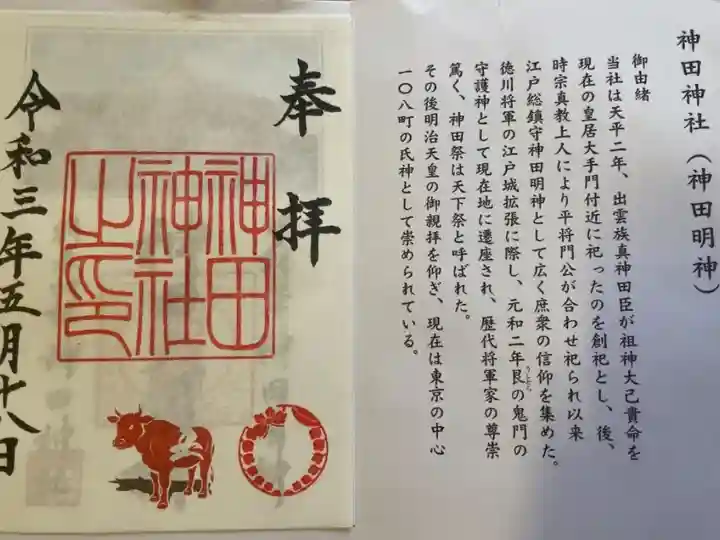 神田神社（神田明神）
御由緒
当社は天平二年、出雲族真神田臣が祖神大己貴命を
現在の皇居大手門付近に祀ったのを創祀とし、後、
時宗真教上人により平将門公が合わせ祀られ以来
江戸総鎮守神田明神として広く庶衆の信仰を集めた。
徳川将軍の江戸城拡張に際し、元和二年艮の鬼門の
うしとら
守護神として現在地に遷座され、歴代将軍家の尊崇
篤く、神田祭は天下祭と呼ばれた。
その後明治天皇の御親拝を仰ぎ、現在は東京の中心
一〇八町の氏神として崇められている。
奉拝
神田
神社
之印
令和三年五月十八日